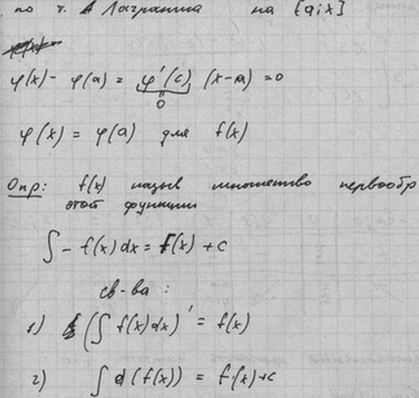 по т. Лагранжа на [a;x]
φ(x) - φ(a) = φ'(c) (x-a) = 0
0
φ(x) = φ(a) для f(x)
Опр: f(x) назыв множество первообр
этой функции
∫ - f(x)dx = F(x) + c
св-ва :
1) (∫ f(x)dx)' = f(x)
2) ∫ d(f(x)) = f(x)+c